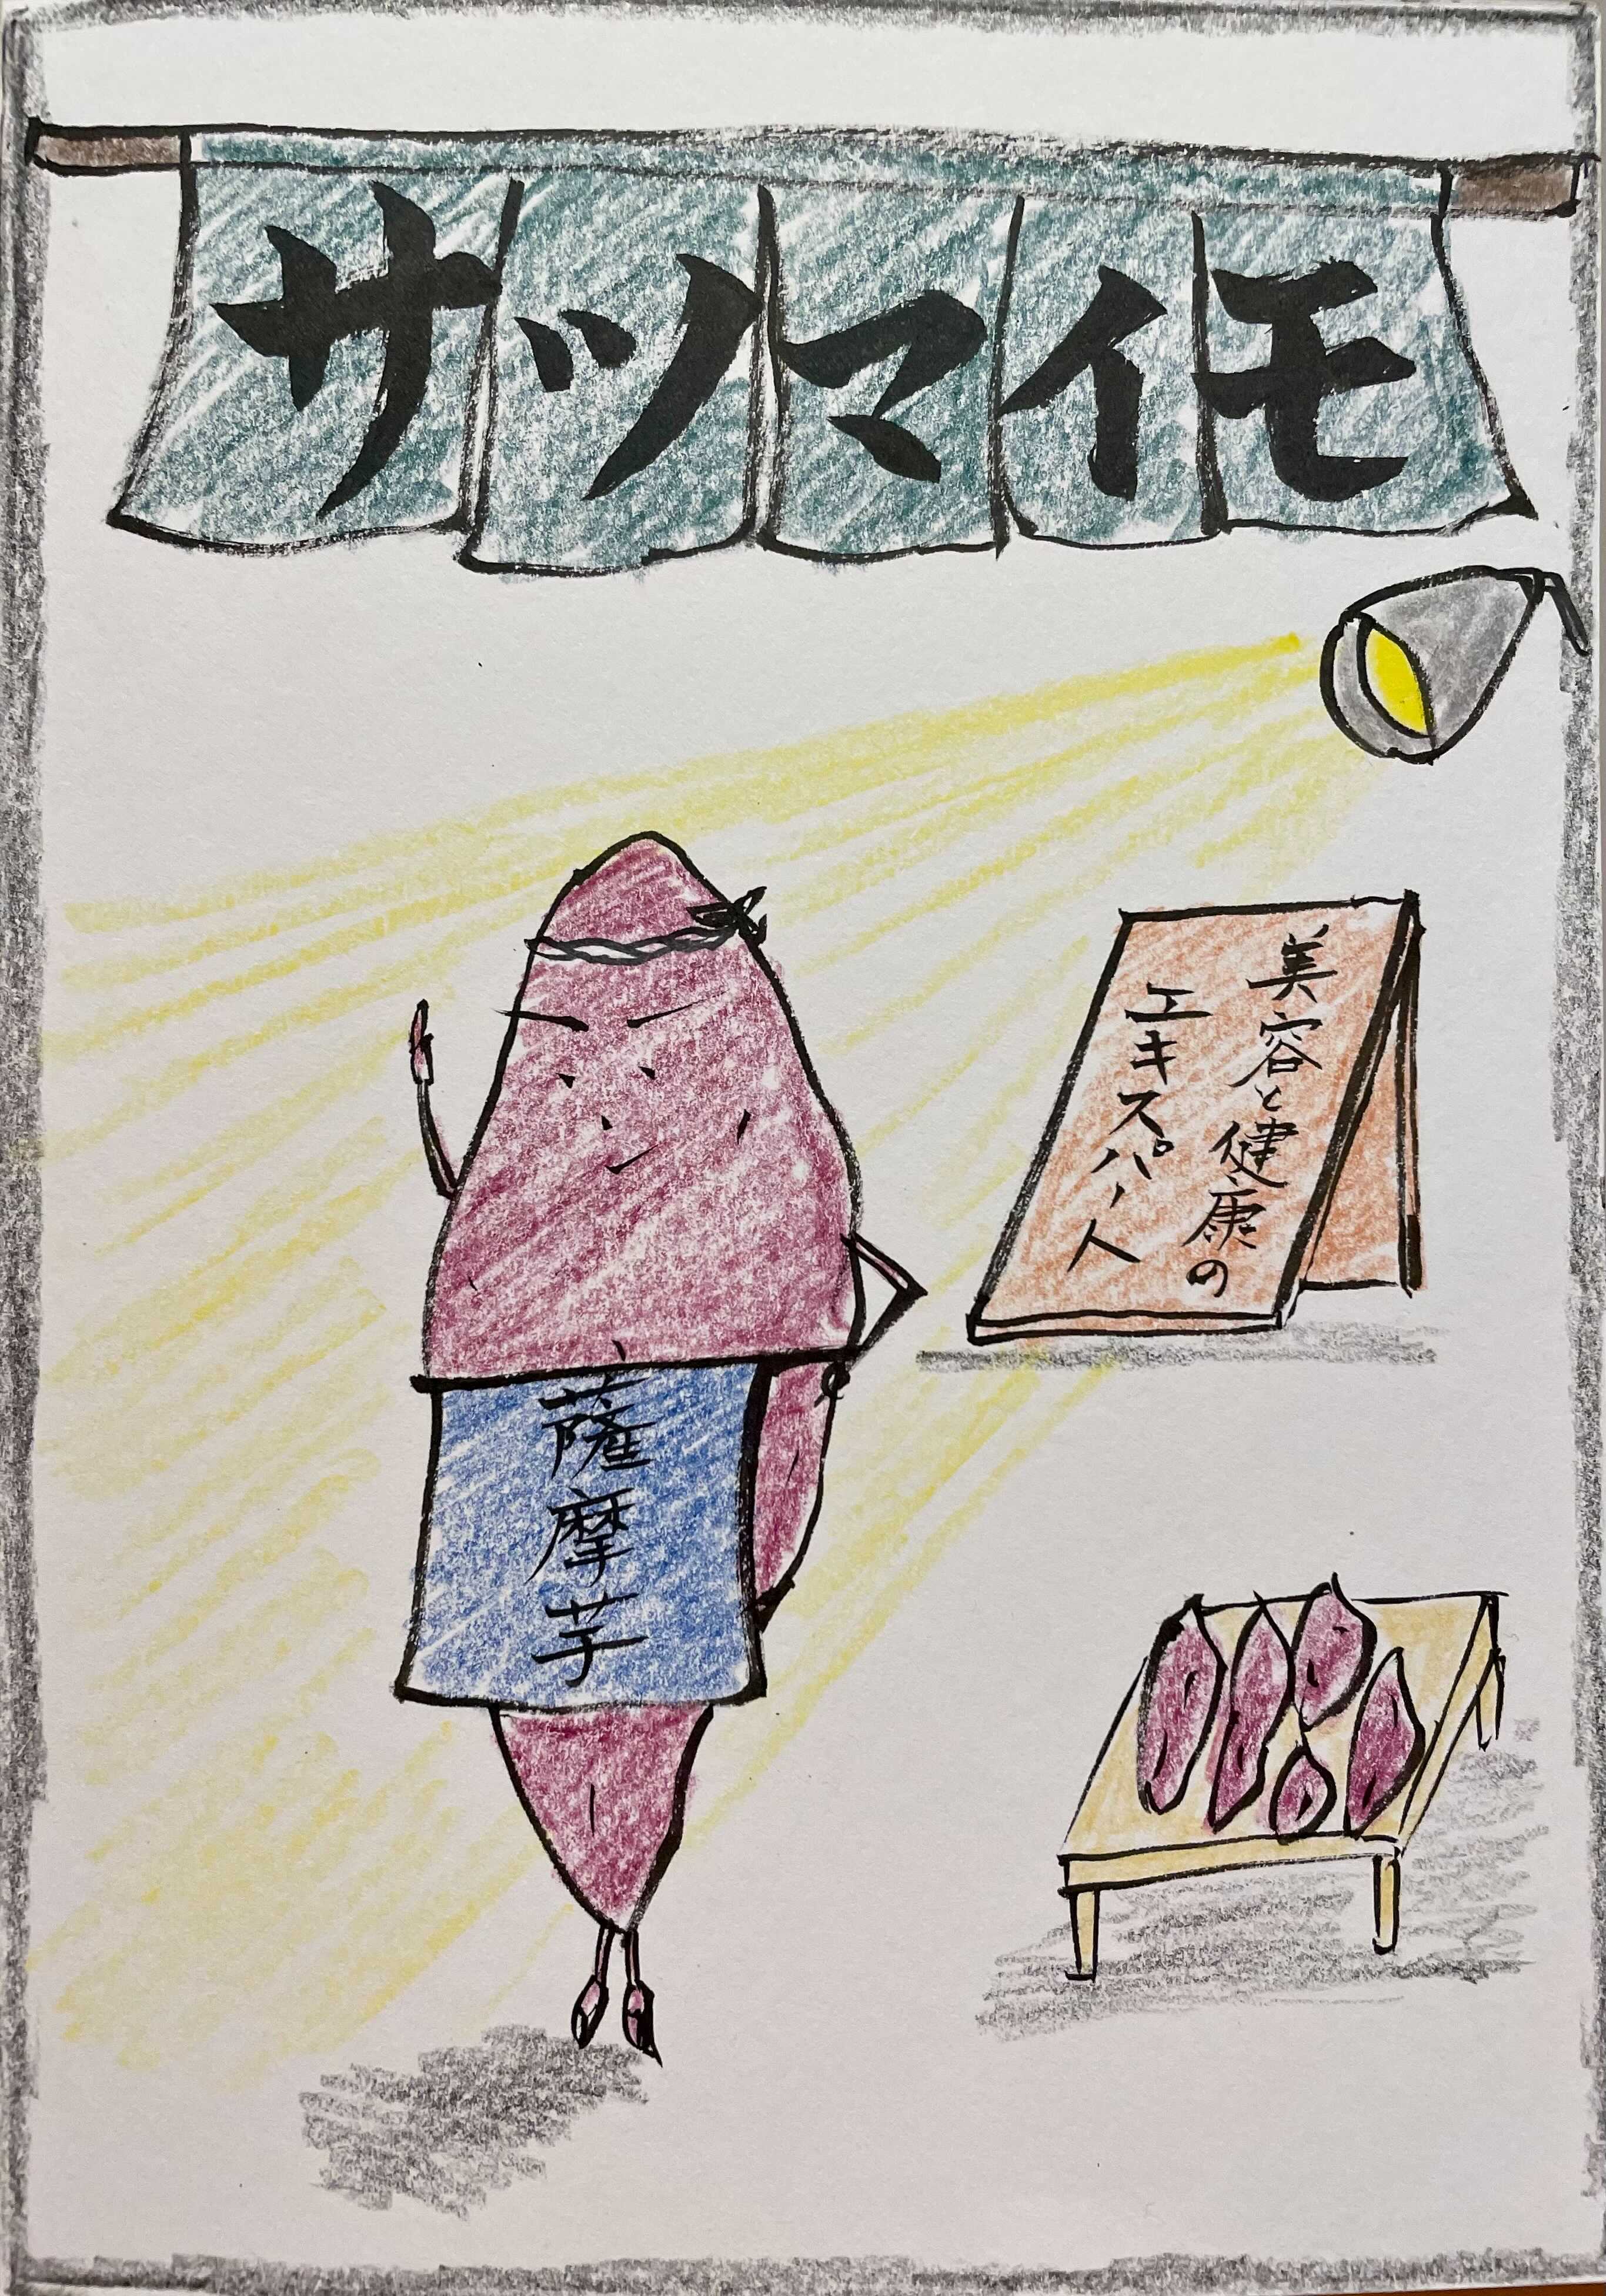 サツマイモ
美容と健康の
エキスパート
薩摩芋